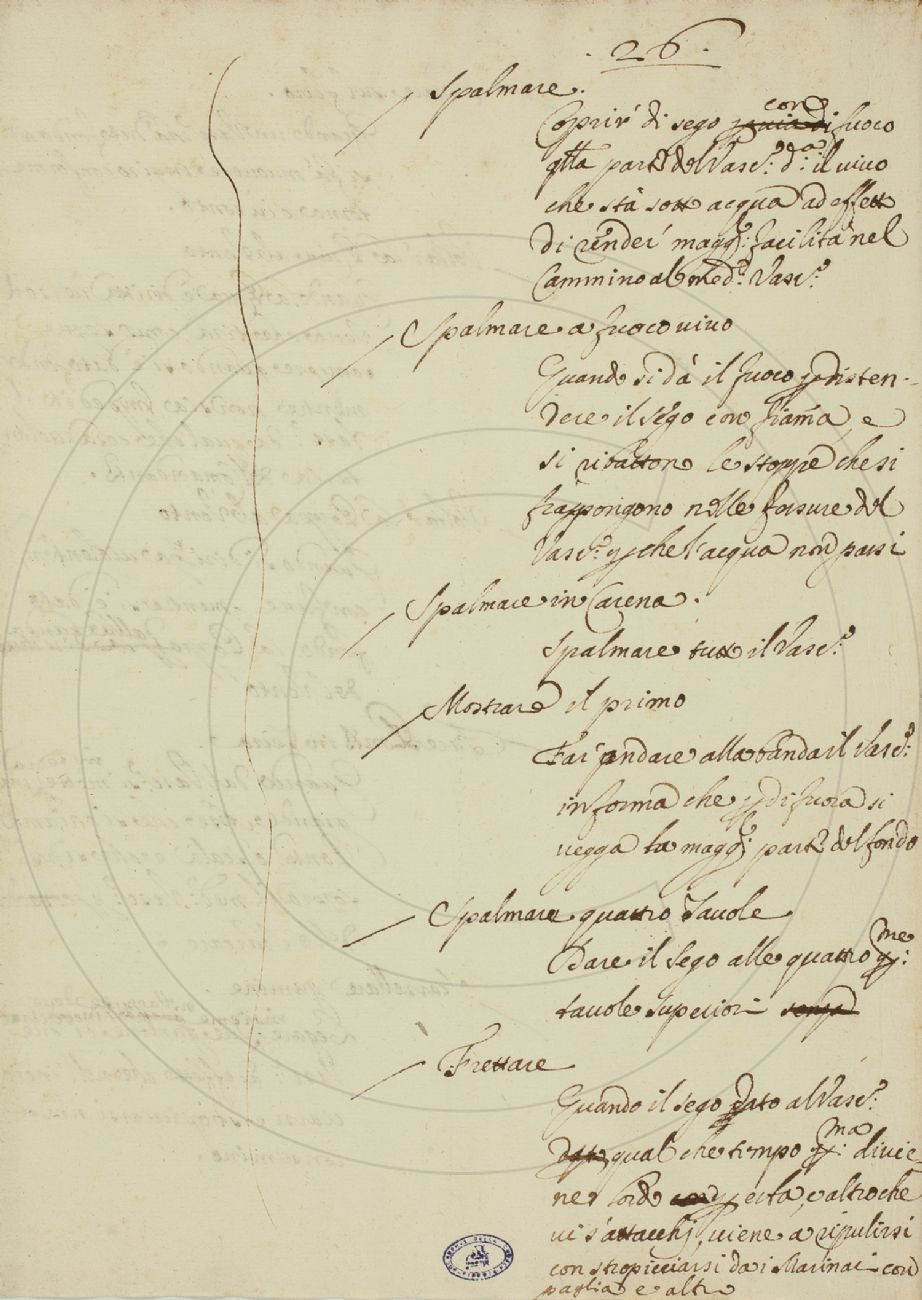 . 26 .
Spalmare.
con
Coprir di sego fuoco
qlla parte del Vasc.º d.ª il vivo
che stà sott acqua ad effett
di render magg.: facilità nel
Cammino al med.º Vasc.º
Spalmare a fuoco vivo
Quando si dà il fuoco p disten-
dere il sego con fiama, e
si ribatton le stoppe che si
frappongono nelle fessure del
Vasc.º p che l'acqua non passi
Spalmare in Carena.
Spalmare tutt il Vasc.º
Mostrare il primo
Far andare alla banda il Vasc.º
in forma che p di fuora si
vegga la magg.: parte del fondo
Spalmare quattro Tavole
me
Dare il sego alle quattro p:
tavole superiori senza
Frettare
Quando il sego dato al Vasc.º
ma
qual che tempo p: divie-
ne lordo p erba, e altro che
vi s'attacchi, viene a ripulirsi
con stropicciarsi da i Marinari con
paglia e altr